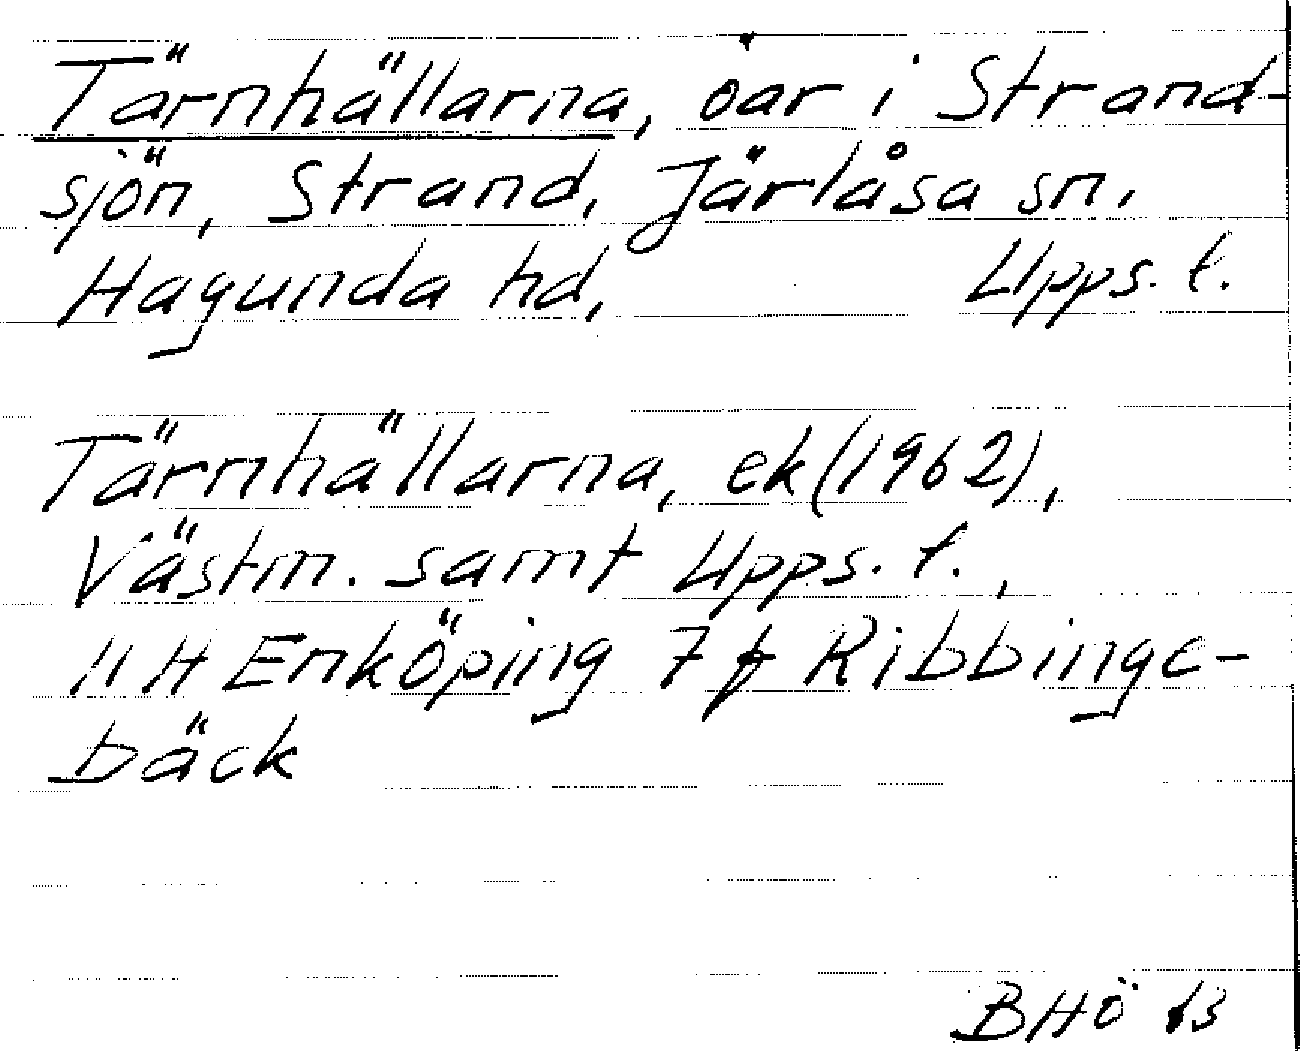 Tärnhällarna, öar i Strand-
sjön, Strand, Järlåsa sn.
Hagunda hd, Upps. l.
Tärnhällarna, ek (1962),
Västm. samt Upps. l.,
11 H Enköping 7 f Ribbinge-
bäck
BHÖ